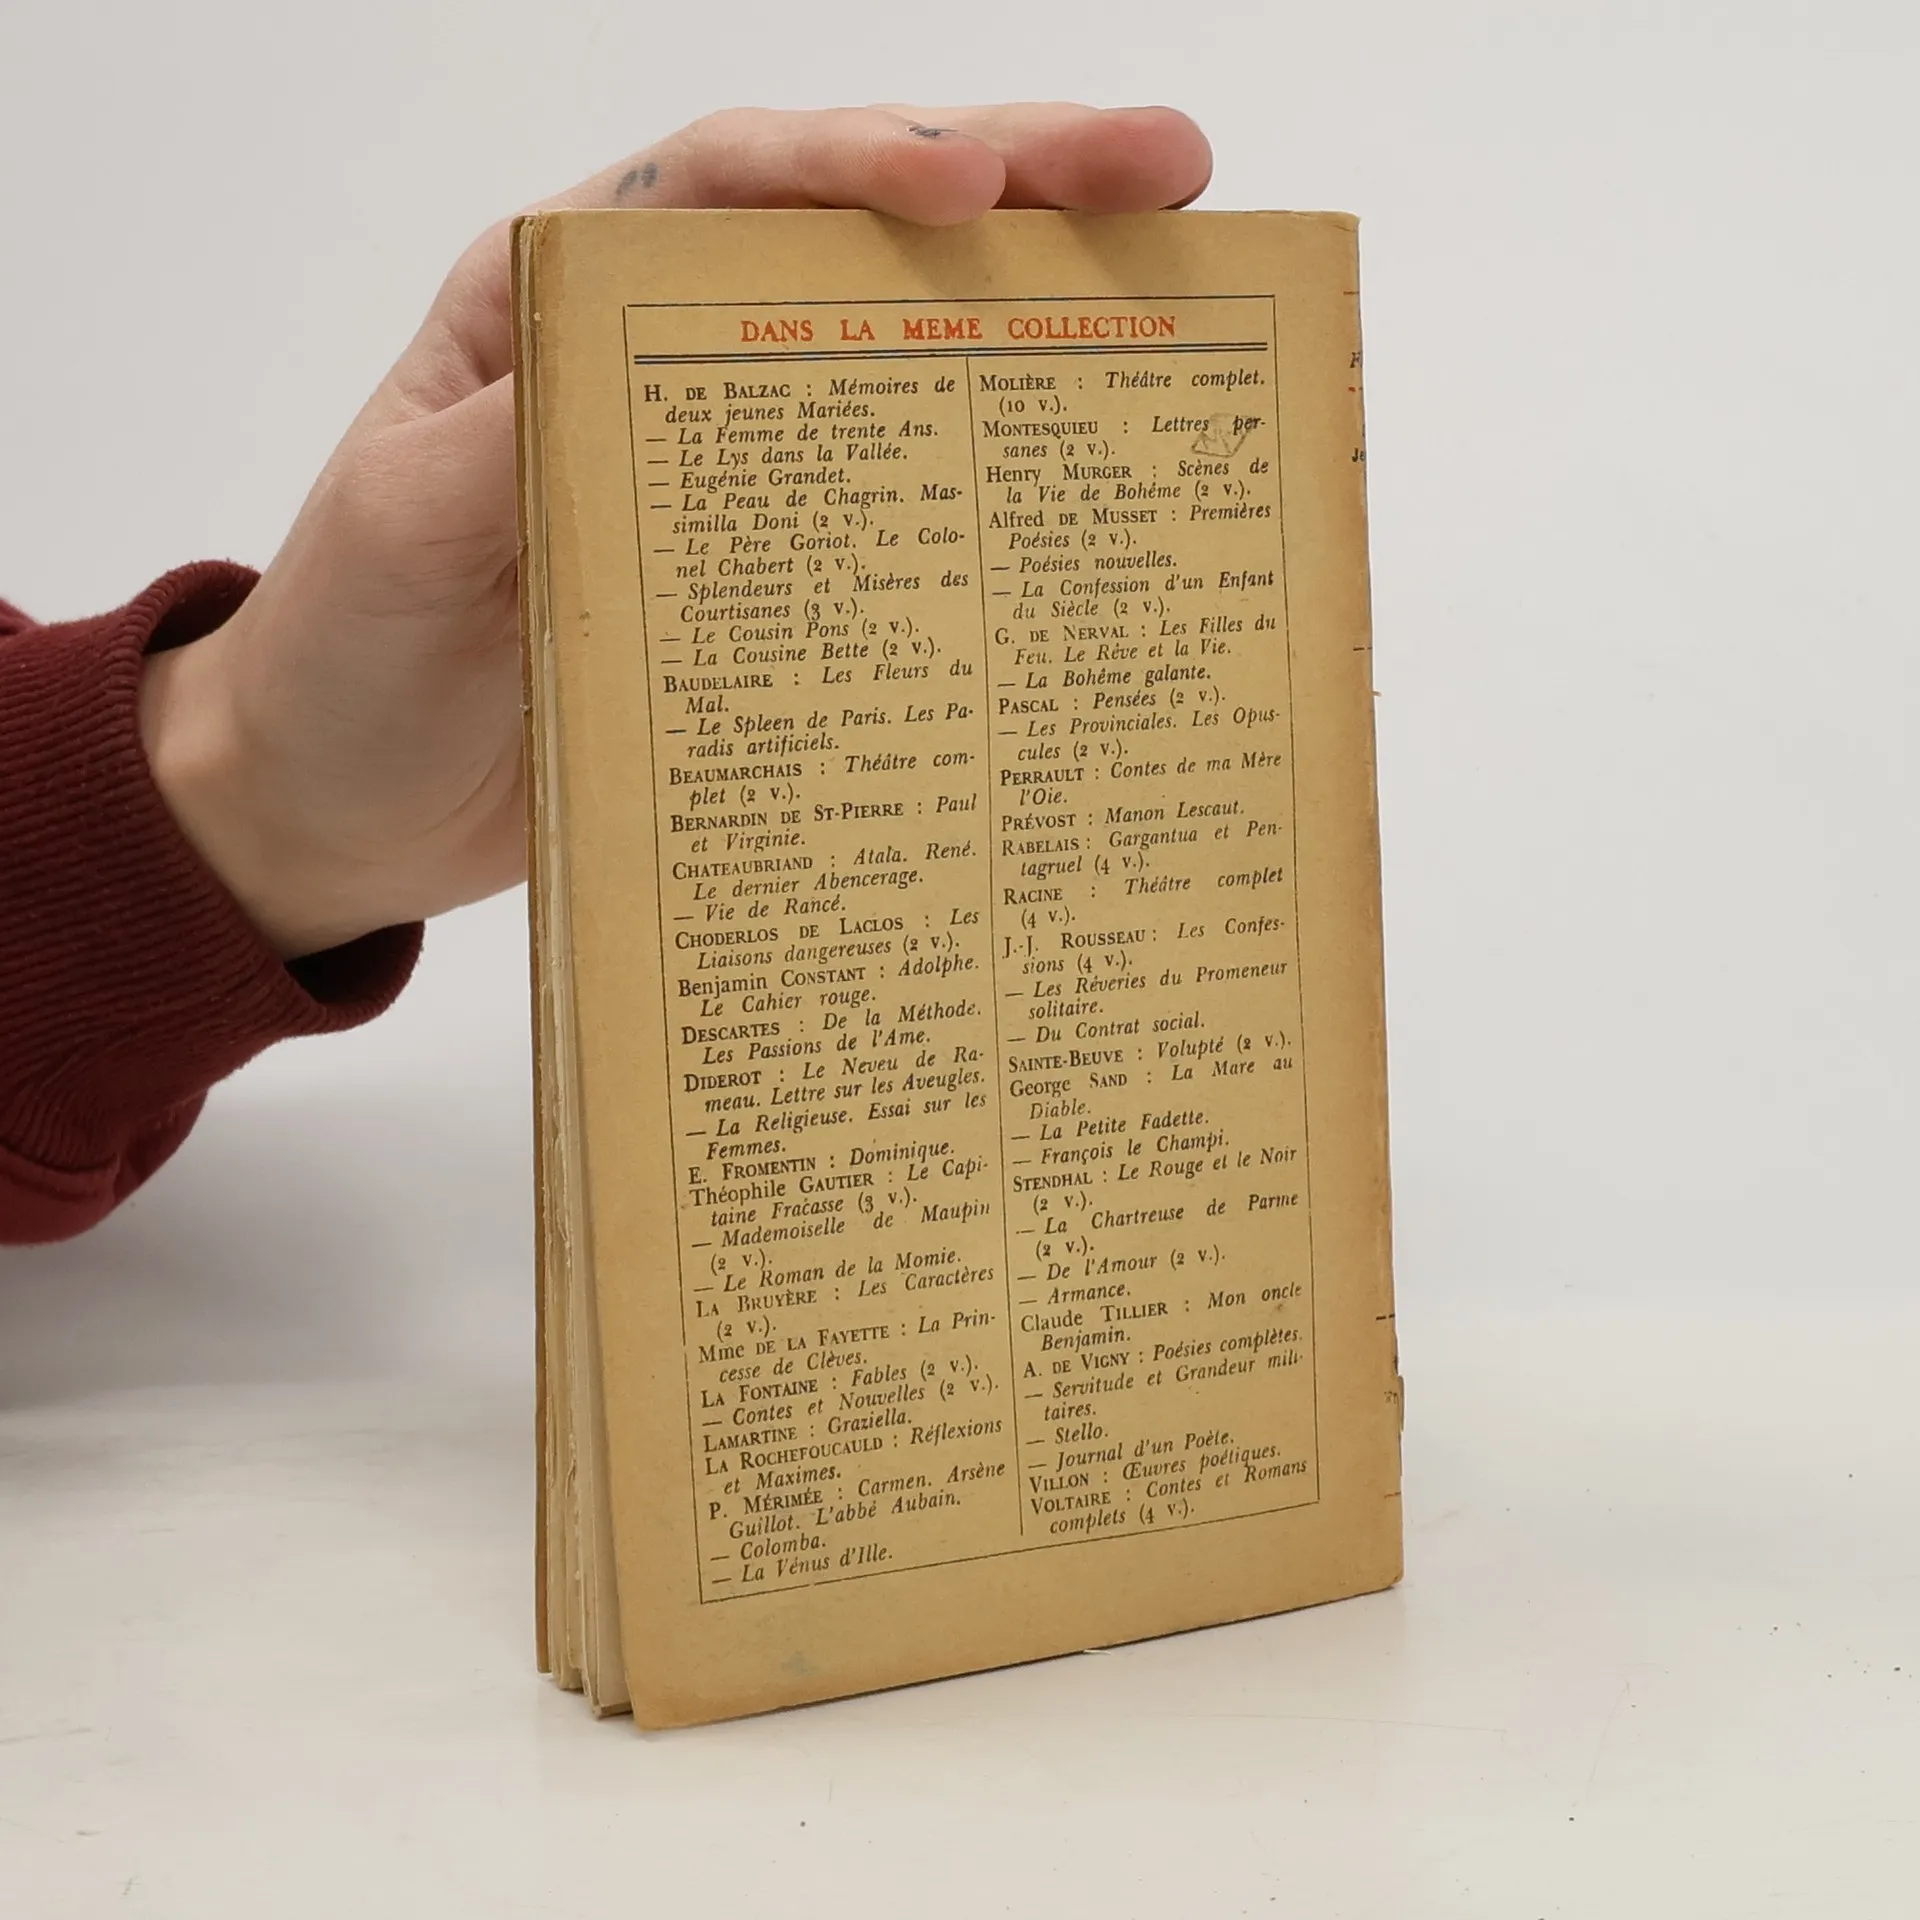 DANS LA MEME COLLECTION
H. DE BALZAC : Mémoires de
deux jeunes Mariées.
— La Femme de trente Ans.
— Le Lys dans la Vallée.
— Eugénie Grandet.
— La Peau de Chagrin. Mas-
similla Doni (2 v.).
— Le Père Goriot. Le Colo-
nel Chabert (2 v.).
— Splendeurs et Misères des
Courtisanes (3 v.).
— Le Cousin Pons (2 v.).
— La Cousine Bette (2 v.).
BAUDELAIRE : Les Fleurs du
Mal.
— Le Spleen de Paris. Les Pa-
radis artificiels.
BEAUMARCHAIS : Théâtre com-
plet (2 v.).
BERNARDIN DE ST-PIERRE : Paul
et Virginie.
CHATEAUBRIAND : Atala. René.
Le dernier Abencerage.
— Vie de Rancé.
CHODERLOS DE LACLOS : Les
Liaisons dangereuses (2 v.).
Benjamin CONSTANT : Adolphe.
Le Cahier rouge.
DESCARTES : De la Méthode.
Les Passions de l'Ame.
DIDEROT : Le Neveu de Ra-
meau. Lettre sur les Aveugles.
— La Religieuse. Essai sur les
Femmes.
E. FROMENTIN : Dominique.
Théophile GAUTIER : Le Capi-
taine Fracasse (3 v.).
— Mademoiselle de Maupin
(2 v.).
— Le Roman de la Momie.
LA BRUYÈRE : Les Caractères
(2 v.).
Mme DE LA FAYETTE : La Prin-
cesse de Clèves.
LA FONTAINE : Fables (2 v.).
— Contes et Nouvelles (2 v.).
LAMARTINE : Graziella.
LA ROCHEFOUCAULD : Réflexions
et Maximes.
P. MÉRIMÉE : Carmen. Arsène
Guillot. L'abbé Aubain.
— Colomba.
— La Vénus d'Ille.
MOLIÈRE : Théâtre complet.
(10 v.).
MONTESQUIEU : Lettres per-
sanes (2 v.).
Henry MURGER : Scènes de
la Vie de Bohême (2 v.).
Alfred DE MUSSET : Premières
Poésies (2 v.).
— Poésies nouvelles.
— La Confession d'un Enfant
du Siècle (2 v.).
G. DE NERVAL : Les Filles du
Feu. Le Rêve et la Vie.
— La Bohême galante.
PASCAL : Pensées (2 v.).
— Les Provinciales. Les Opus-
cules (2 v.).
PERRAULT : Contes de ma Mère
l'Oie.
PRÉVOST : Manon Lescaut.
RABELAIS : Gargantua et Pen-
tagruel (4 v.).
RACINE : Théâtre complet
(4 v.).
J.-J. ROUSSEAU : Les Confes-
sions (4 v.).
— Les Rêveries du Promeneur
solitaire.
— Du Contrat social.
SAINTE-BEUVE : Volupté (2 v.).
George SAND : La Mare au
Diable.
— La Petite Fadette.
— François le Champi.
STENDHAL : Le Rouge et le Noir
(2 v.).
— La Chartreuse de Parme
(2 v.).
— De l'Amour (2 v.).
— Armance.
Claude TILLIER : Mon oncle
Benjamin.
A. DE VIGNY : Poésies complètes.
— Servitude et Grandeur mili-
taires.
— Stello.
— Journal d'un Poète.
VILLON : Œuvres poétiques.
VOLTAIRE : Contes et Romans
complets (4 v.).